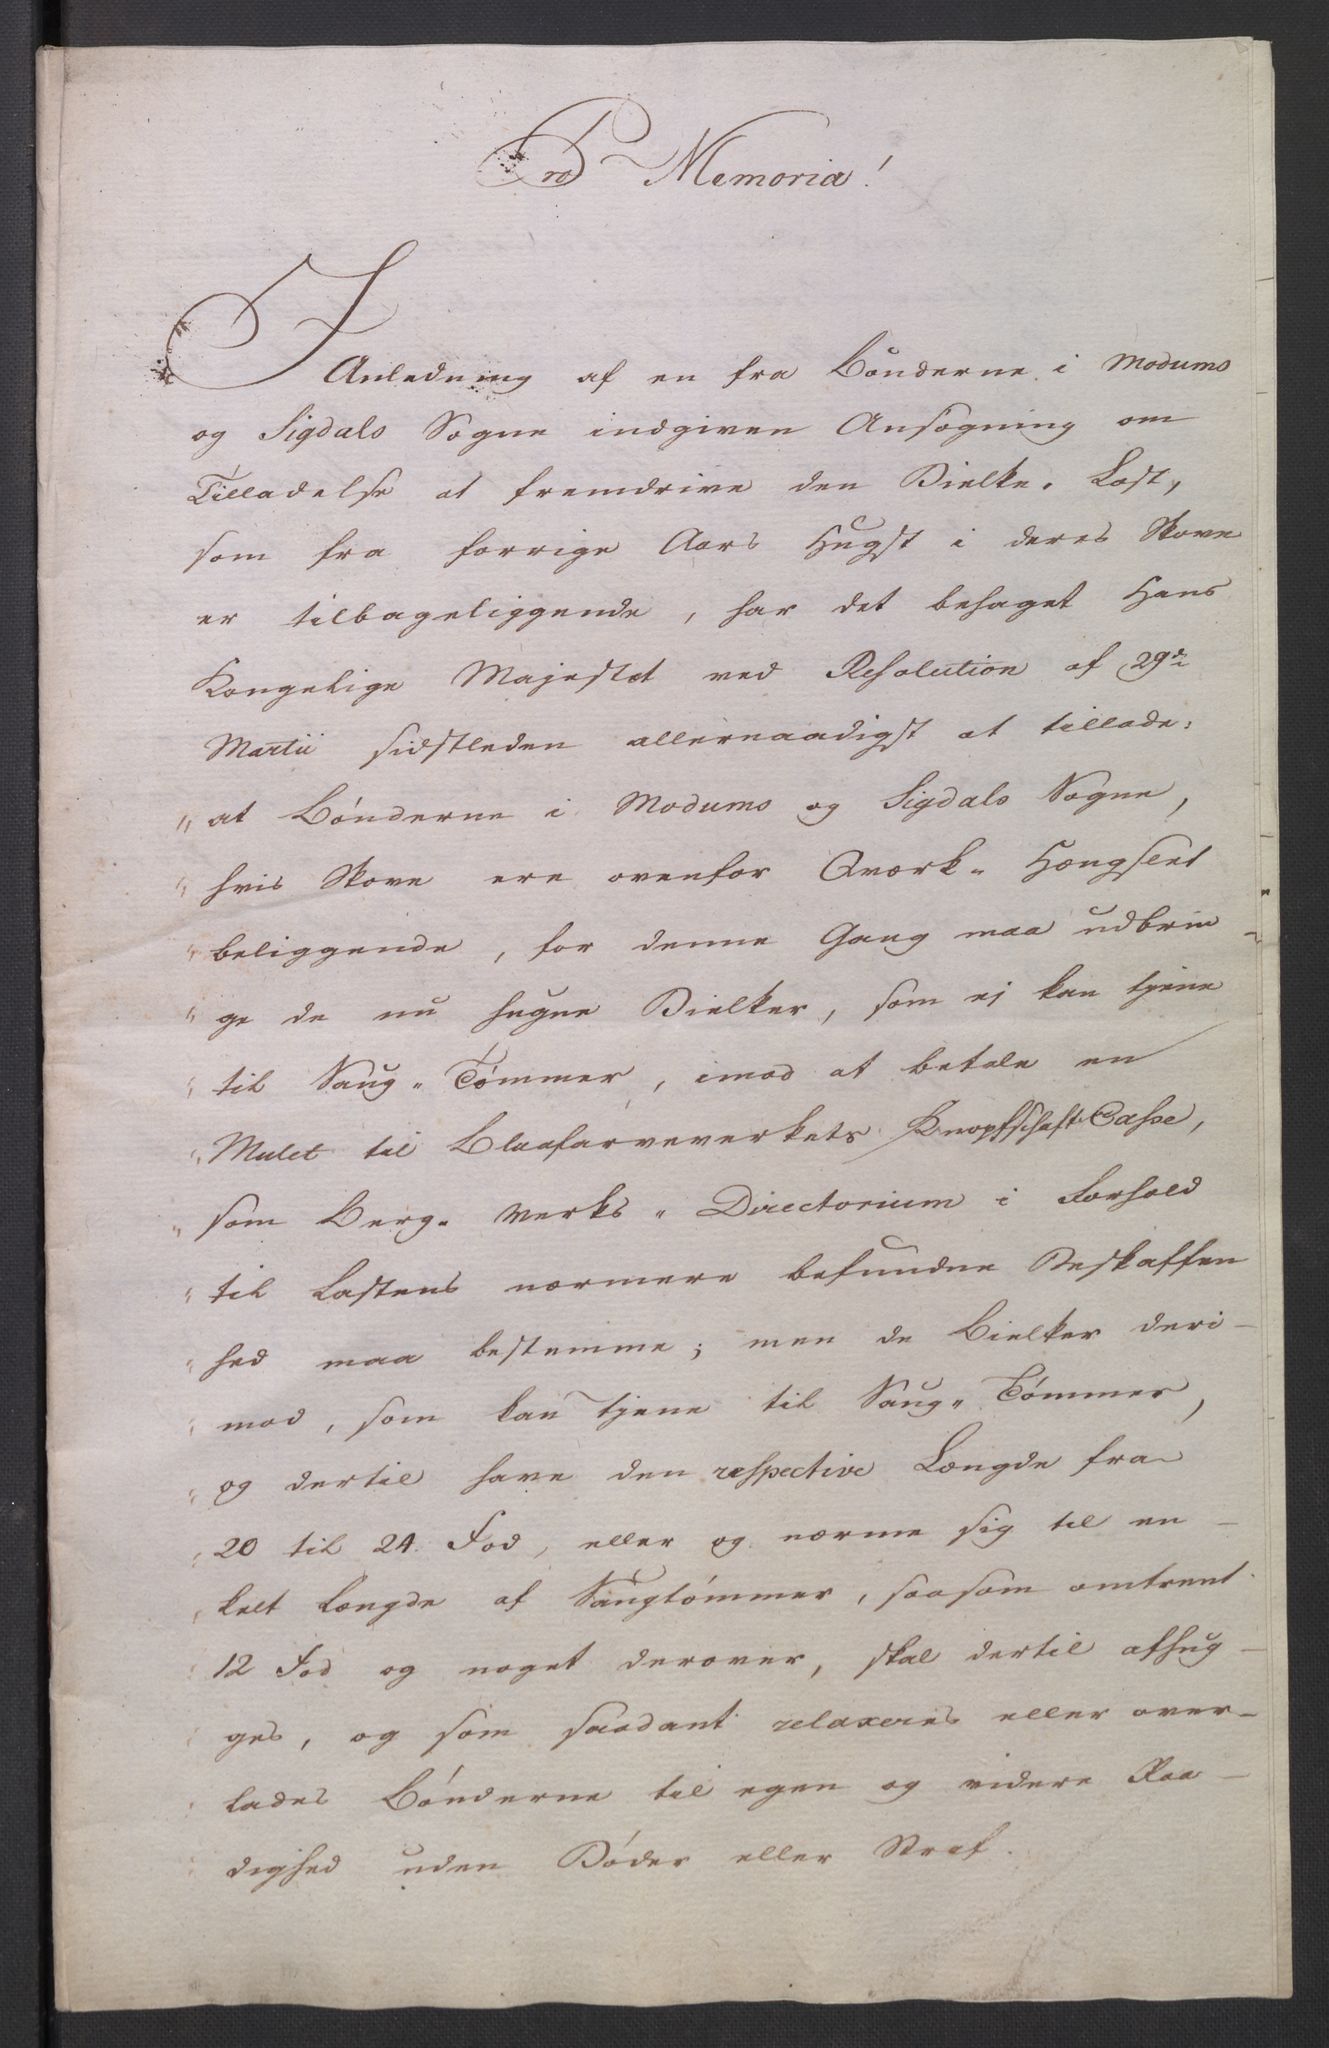 Pro Memoria!
I Anledning af en fra Bönderne i Modums
og Sigdals Sogne indgiven Ansögning om
Tilladelse at fremdrive den Bielke-Last,
som fra forrige Aars Hugst i deres Skove
er tilbageliggende, har det behaget Hans
Kongelige Majestæt ved Resolution af 29de
Martii sidstleden allernaadigst at tillade:
" at Bönderne i Modums og Sigdals Sogne,
" hvis Skove ere ovenfor Qværk-Hængslet
" beliggende, for denne Gang maa udbrin-
" ge de nu hugne Bielker, som ej kan tjene
" til Saug-Tömmer, imod at betale en
" Mulct til Blaafarveverkets Knopfschaft Casse,
" som Berg-Verks-Directorium i Forhold
" til Lastens nærmere befundne Beskaffen
" hed maa bestemme; men de Bielker deri-
" mod, som kan tjene til Saug-Tömmer,
" og dertil have den respective Længde fra
" 20 til 24 Fod, eller og nærme sig til en-
" kelt Længde af Saugtömmer, saasom omtrent
" 12 Fod og noget derover, skal dertil afhug-
ges, og som saadant relaxeres eller over-
lades Bönderne til egen og videre Raa-
dighed uden Böder eller Straf.